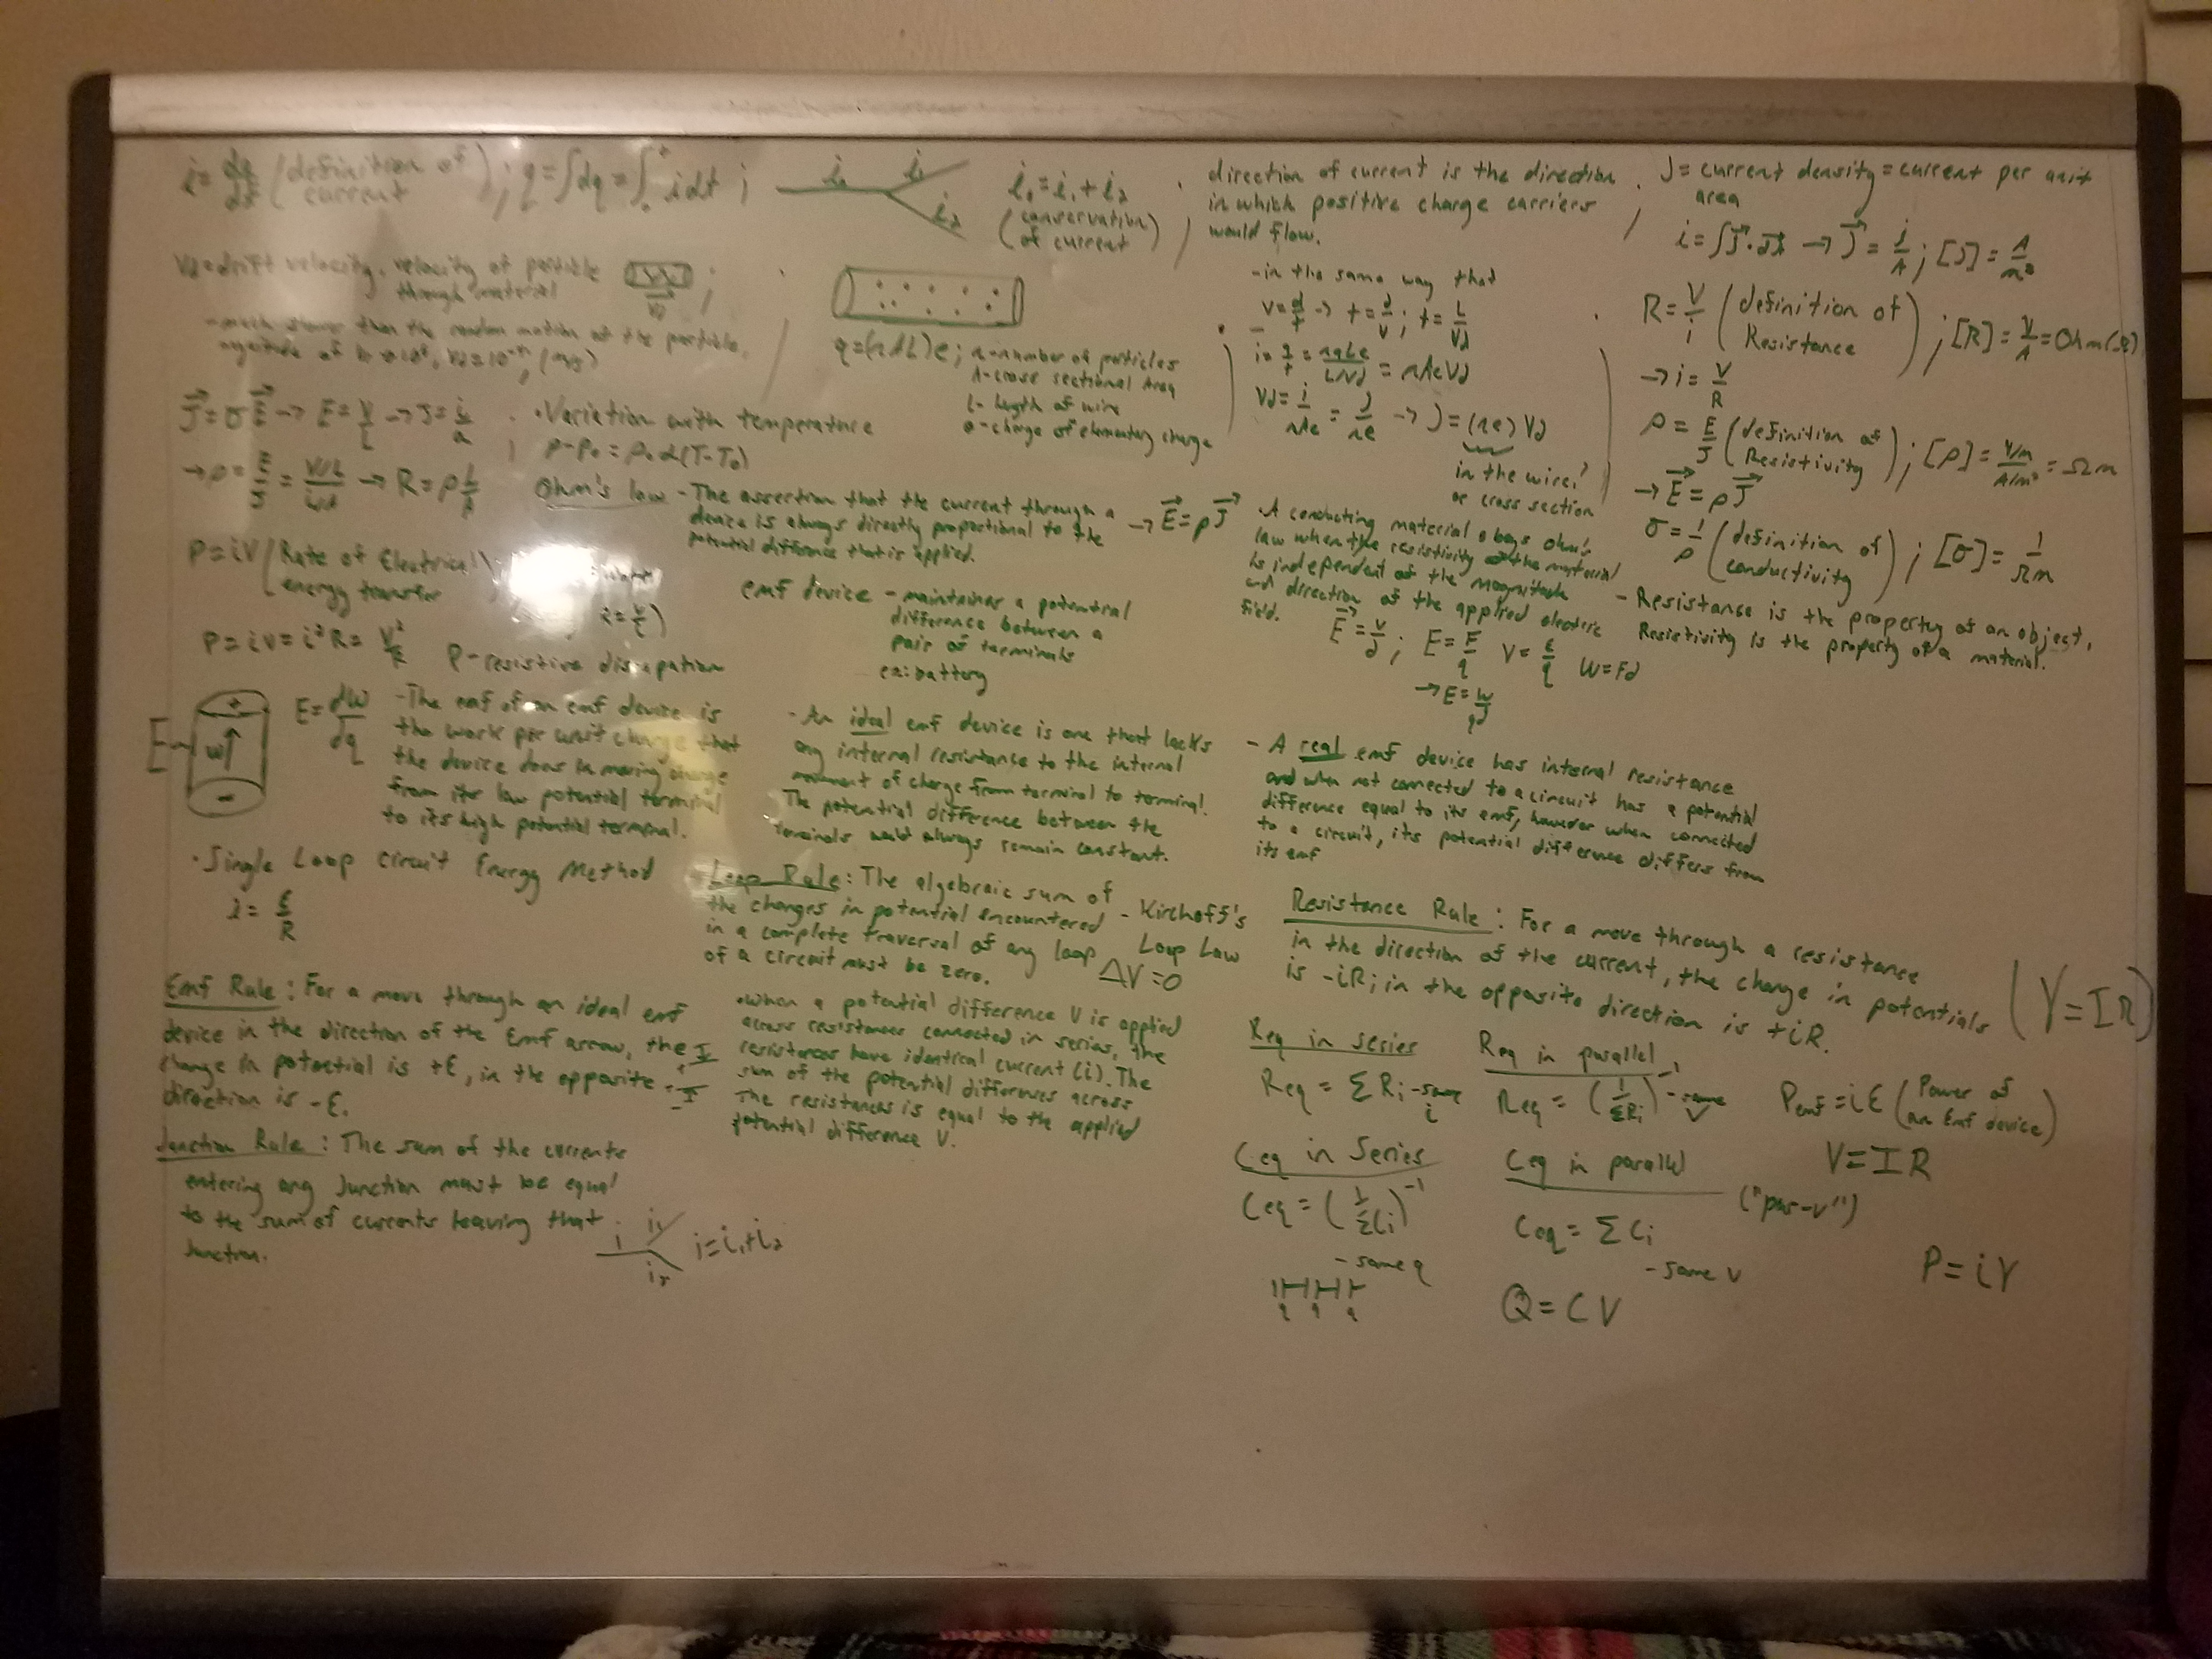 i = dq/dt (definition of current); q = ∫dq = ∫₀ᵗ i dt ;
i₀ i₁ i₂
i₀ = i₁ + i₂
(conservation of current)
direction of current is the direction
in which positive charge carriers
would flow.
J = current density = current per unit
area
i = ∫J⃗·dA⃗ → J⃗ = i/A ; [J] = A/m²
Vd = drift velocity, velocity of particle
through material
- much slower than the random motion of the particle,
q = (nAL)e ; n - number of particles
A - cross sectional Area
L - length of wire
e - charge of elementary charge
- in the same way that
v = d/t → t = d/v ; t = L/Vd
i = q/t = nALe/(L/Vd) = nAeVd
Vd = i/nAe = J/ne → J = (ne)Vd
in the wire?
or cross section
R = V/i (definition of Resistance) ; [R] = V/A = Ohm(Ω)
→ i = V/R
ρ = E/J (definition of Resistivity) ; [ρ] = V/m / A/m² = Ωm
→ E⃗ = ρJ⃗
σ = 1/ρ (definition of conductivity) ; [σ] = 1/Ωm
- Resistance is the property of an object,
Resistivity is the property of a material.
J⃗ = σE⃗ → E = V/L → J = i/a
→ ρ = E/J = V/L / i/A → R = ρ L/A
• Variation with temperature
ρ - ρ₀ = ρ₀α(T - T₀)
Ohm's law - The assertion that the current through a
device is always directly proportional to the
potential difference that is applied.
→ E⃗ = ρJ⃗
- A conducting material obeys Ohm's
law when the resistivity of the material
is independent of the magnitude
and direction of the applied electric
field.
E⃗ = V/d ; E = F/q V = E/q W = Fd
→ E = W/qd
P = iV (Rate of Electrical energy transfer)
P = iV = i²R = V²/R P - resistive dissipation
emf device - maintains a potential
difference between a
pair of terminals
ex: battery
E = dW/dq
- The emf of an emf device is
the work per unit charge that
the device does in moving charge
from its low potential terminal
to its high potential terminal.
- An ideal emf device is one that lacks
any internal resistance to the internal
movement of charge from terminal to terminal.
The potential difference between the
terminals would always remain constant.
- A real emf device has internal resistance
and when not connected to a circuit has a potential
difference equal to its emf, however when connected
to a circuit, its potential difference differs from
its emf
• Single Loop Circuit Energy Method
i = ε/R
Loop Rule: The algebraic sum of
the changes in potential encountered
in a complete traversal of any loop
of a circuit must be zero.
- Kirchoff's
Loop Law
ΔV = 0
Resistance Rule: For a move through a resistance
in the direction of the current, the change in potentials
is -iR; in the opposite direction is +iR.
(V = IR)
Emf Rule: For a move through an ideal emf
device in the direction of the Emf arrow, the
change in potential is +ε, in the opposite
direction is -ε.
• When a potential difference V is applied
across resistances connected in series, the
resistances have identical current (i). The
sum of the potential differences across
The resistances is equal to the applied
potential difference V.
Req in series
Req = ΣRi - same i
Req in parallel
Req = (1/ΣRi)⁻¹ - same V
Pemf = iε (Power of an Emf device)
V = IR
Junction Rule: The sum of the currents
entering any Junction must be equal
to the sum of currents leaving that
Junction.
i i₁ i₂ i = i₁ + i₂
Ceq in Series
Ceq = (1/ΣCi)⁻¹
- same q
q q q
Ceq in parallel
("par-v")
Ceq = ΣCi
- same V
Q = CV
P = iV